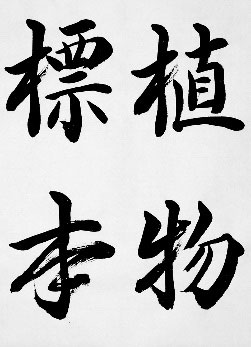 植物
標本